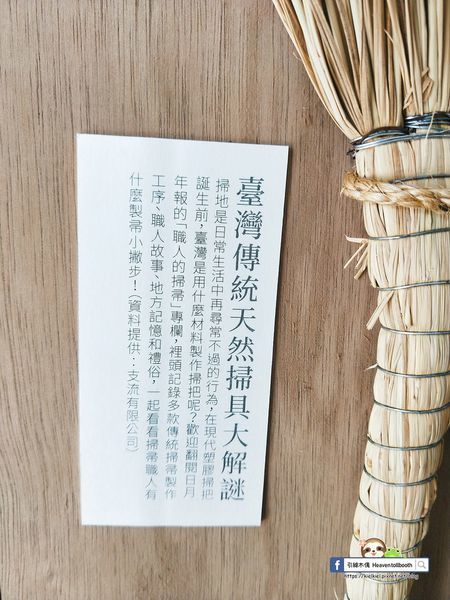 臺灣傳統天然掃具大解謎
掃地是日常生活中再尋常不過的行為，在現代塑膠掃把
誕生前，臺灣是用什麼材料製作掃把呢？歡迎翻閱日月
年報的「職人的掃帚」專欄，裡頭記錄多款傳統掃帚製作
工序、職人故事、地方記憶和禮俗，一起看看掃帚職人有
什麼製帚小撇步！（資料提供：支流有限公司）
引線不偶 Heaventollbooth